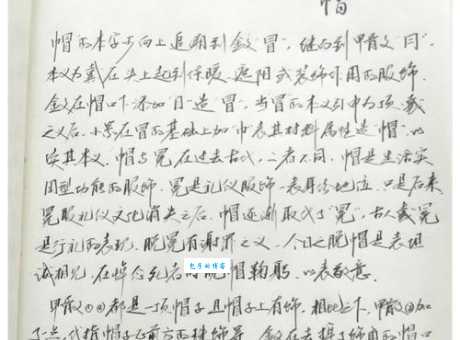 帽
帽的本字可向上追溯到金文"冒",继而到甲骨文"冃",
本义为戴在头上起到保暖、遮阳或装饰作用的服饰,
金文在帽口下添加"目"造"冒",当冒的本义引申为顶、戴
之义后,小篆在冒的基础上加巾表其材料属性造"帽",以
续其本义,帽与冕在过去古代,二者不同,帽是生活实
用型功能的服饰,冕是礼仪服饰,表身份地位,只是后来
冕服礼仪文化消失之后,帽逐渐取代了"冕",古人戴冕
是行礼的表现,脱冕有谢罪之义,今日之脱帽是表坦
诚相见,在悼念死者时脱帽鞠躬,以表敬意.
甲骨文①②都是一顶帽子且帽子上有饰,相比之下,甲骨文③加
了一点,代指帽子正前方的 金文在去掉了饰的帽口